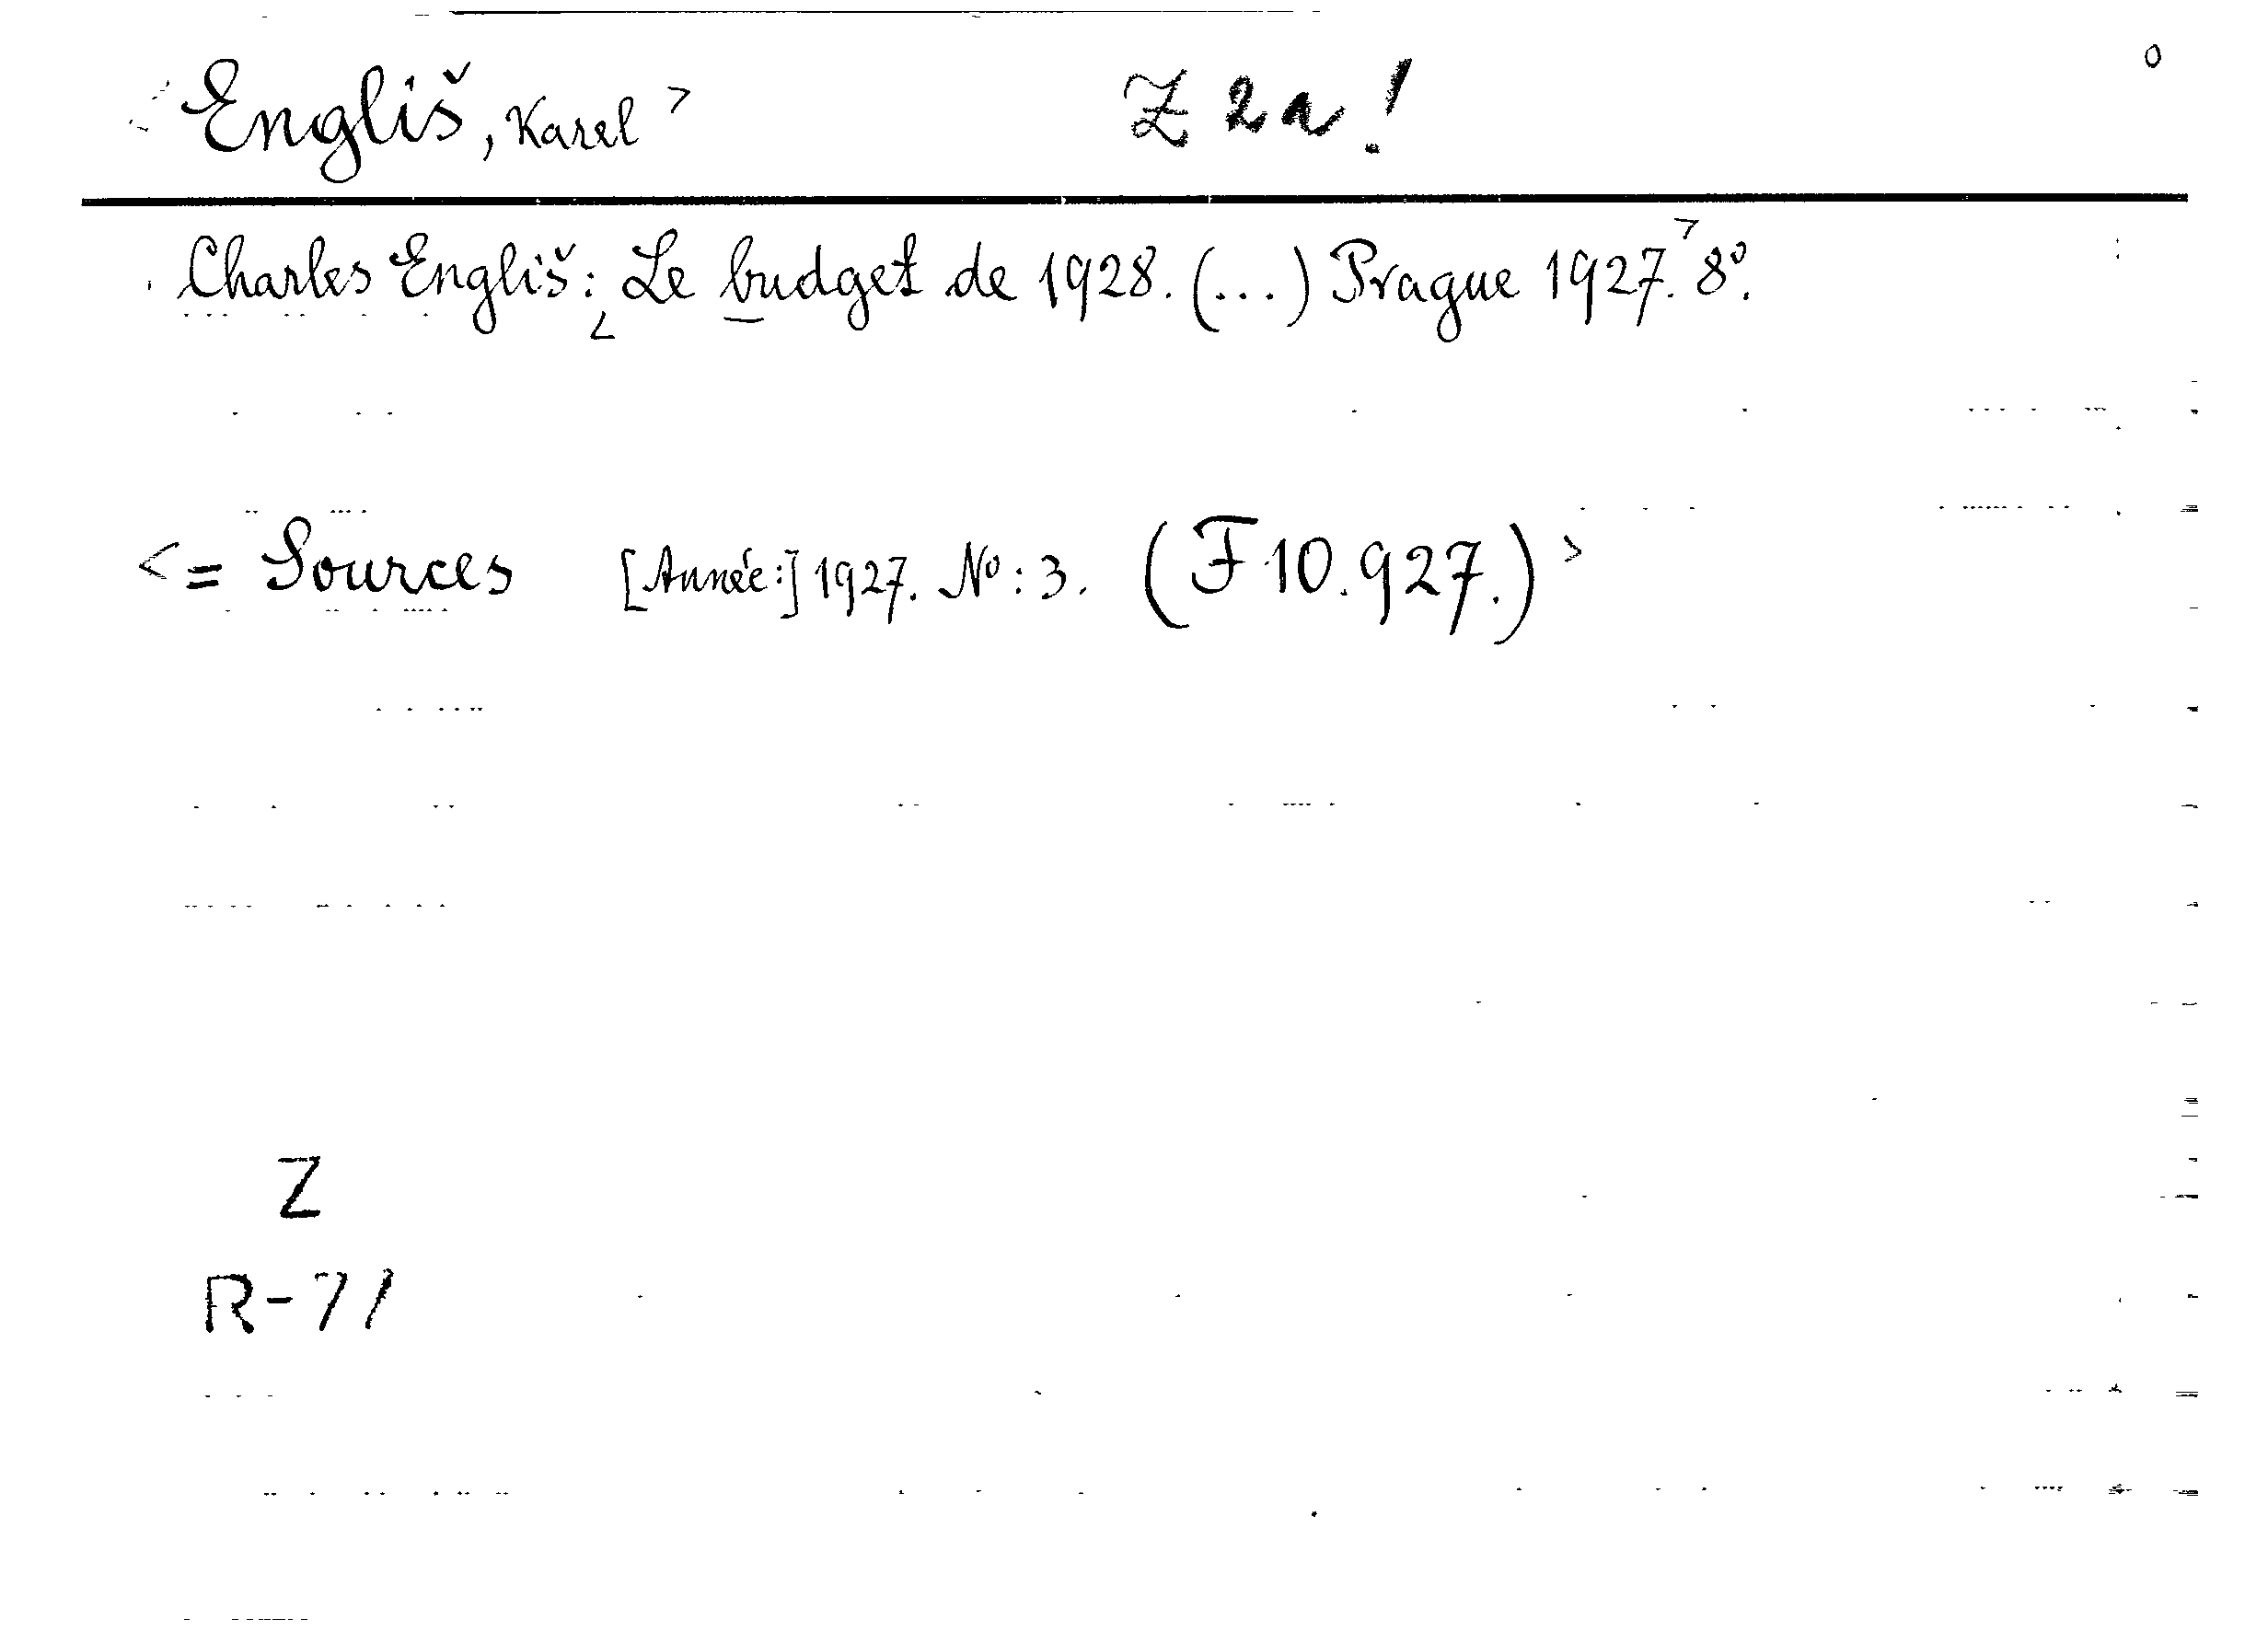 Engliš, Karel > Z 2a! 0
Charles Engliš: < Le budget de 1928. (...) Prague 1927. > 8º.
< = Sources [Année:] 1927. Nº: 3. (F 10.927.) >
Z
R-71